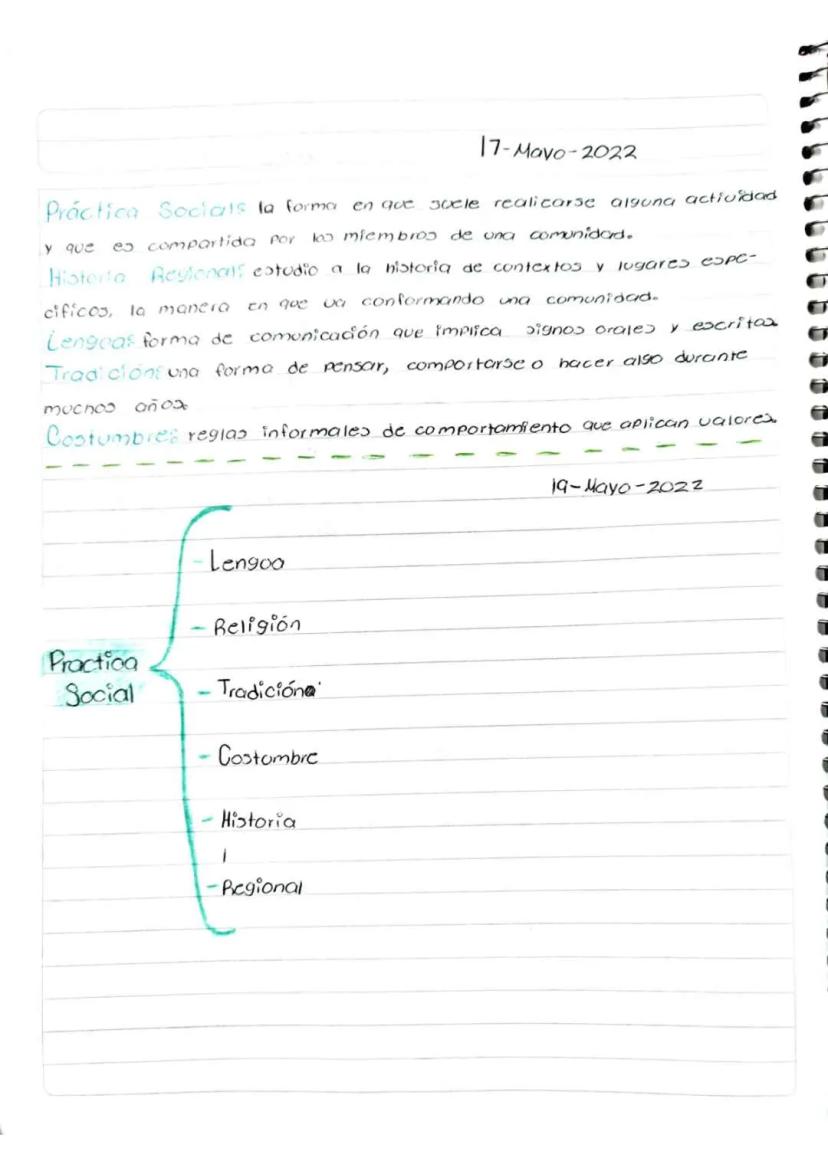 17-Mayo-2022
Práctica Social: la forma en que suele realicarse alguna actividad
y que es compartida por los miembros de una comunidad.
Historia Regional: estudio a la historia de contextos y lugares espe-
cíficos, la manera en que va conformando una comunidad.
Lengua: forma de comunicación que implica signos orales y escritas
Tradición: una forma de pensar, comportarse o hacer algo durante
muchos años
Costumbres: reglas informales de comportamiento que aplican valores.
19-Mayo-2022
- Lengua
- Religión
Practica
Social
- Tradición
- Costumbre
- Historia
|
- Regional